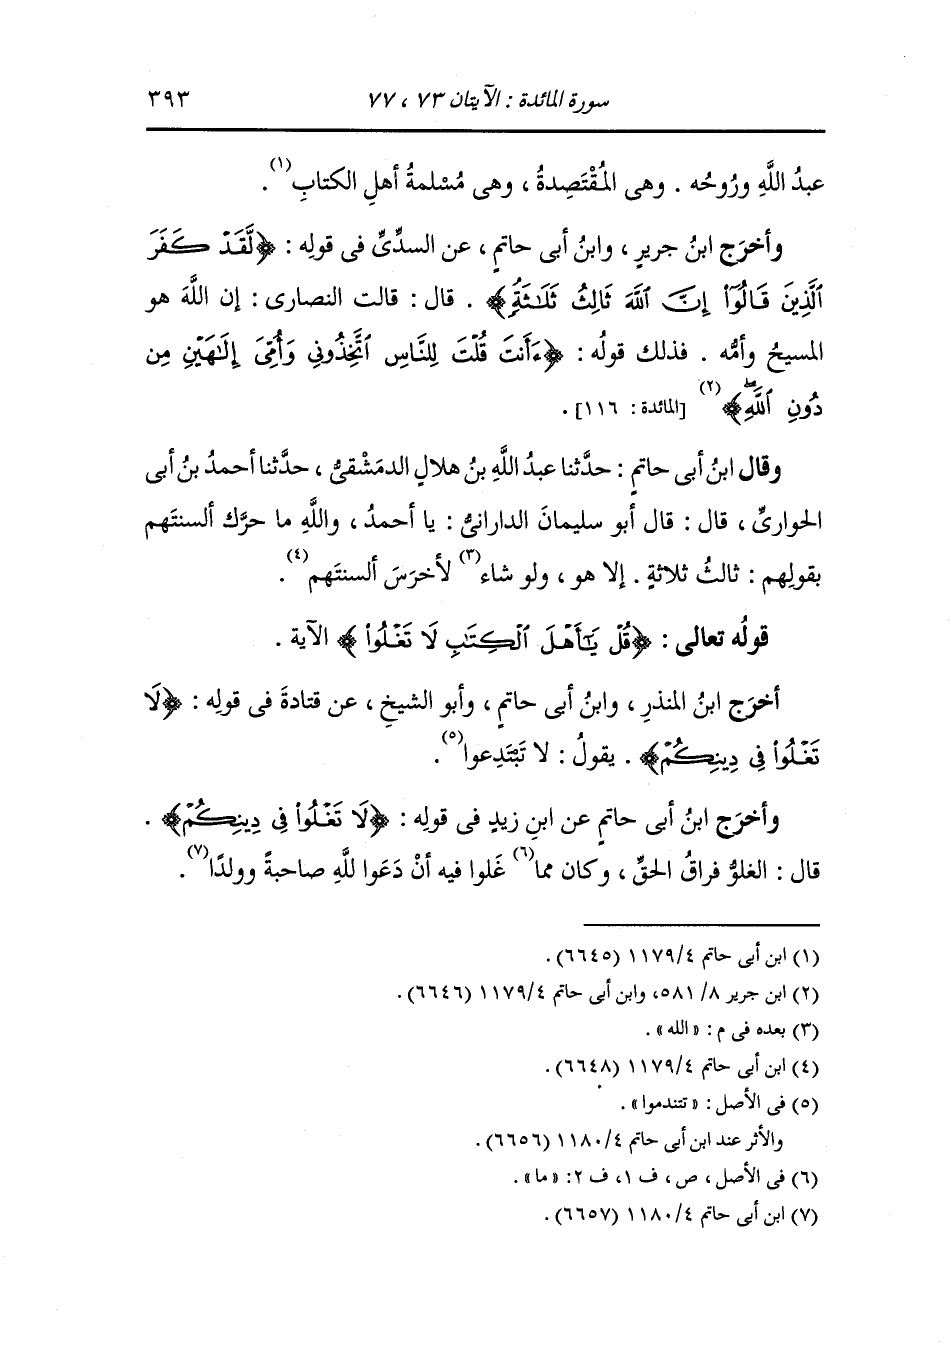 سورة المائدة : الآيتان ٧٣ ، ٧٧ ٣٩٣
عبدُ اللَّهِ ورُوحُه . وهى المُقْتَصِدةُ ، وهى مُسْلمةُ أهلِ الكتابِ(١) .
وأخرَج ابنُ جريرٍ ، وابنُ أبى حاتمٍ ، عن السدِّىِّ فى قولِه : ﴿لَّقَدْ كَفَرَ
ٱلَّذِينَ قَالُوٓاْ إِنَّ ٱللَّهَ ثَالِثُ ثَلَٰثَةٍ﴾ . قال : قالت النصارى : إن اللَّهَ هو
المسيحُ وأمُّه . فذلك قولُه : ﴿ءَأَنتَ قُلْتَ لِلنَّاسِ ٱتَّخِذُونِى وَأُمِّىَ إِلَٰهَيْنِ مِن
دُونِ ٱللَّهِۖ﴾(٢) [المائدة : ١١٦] .
وقال ابنُ أبى حاتمٍ : حدَّثنا عبدُ اللَّهِ بنُ هلالٍ الدمَشْقىُّ ، حدَّثنا أحمدُ بنُ أبى
الحوارىِّ ، قال : قال أبو سليمانَ الدارانىُّ : يا أحمدُ ، واللَّهِ ما حرَّك ألسنتَهم
بقولِهم : ثالثُ ثلاثةٍ . إلا هو ، ولو شاء(٣) لأخرَسَ ألسنتَهم(٤) .
قولُه تعالى : ﴿قُلْ يَٰٓأَهْلَ ٱلْكِتَٰبِ لَا تَغْلُواْ﴾ الآية .
أخرَج ابنُ المنذرِ ، وابنُ أبى حاتمٍ ، وأبو الشيخِ ، عن قتادةَ فى قولِه : ﴿لَا
تَغْلُواْ فِى دِينِكُمْ﴾ . يقولُ : لا تَبْتَدِعوا(٥) .
وأخرَج ابنُ أبى حاتمٍ عن ابنِ زيدٍ فى قولِه : ﴿لَا تَغْلُواْ فِى دِينِكُمْ﴾ .
قال : الغلوُّ فراقُ الحقِّ ، وكان مما(٦) غَلوا فيه أنْ دَعَوا للَّهِ صاحبةً وولدًا(٧) .
(١) ابن أبى حاتم ٤/١١٧٩ (٦٦٤٥) .
(٢) ابن جرير ٨/ ٥٨١، وابن أبى حاتم ٤/١١٧٩ (٦٦٤٦) .
(٣) بعده فى م : « الله » .
(٤) ابن أبى حاتم ٤/١١٧٩ (٦٦٤٨) .
(٥) فى الأصل : « تتندموا » .
والأثر عند ابن أبى حاتم ٤/١١٨٠ (٦٦٥٦) .
(٦) فى الأصل ، ص ، ف ١، ف ٢: « ما » .
(٧) ابن أبى حاتم ٤/١١٨٠ (٦٦٥٧) .